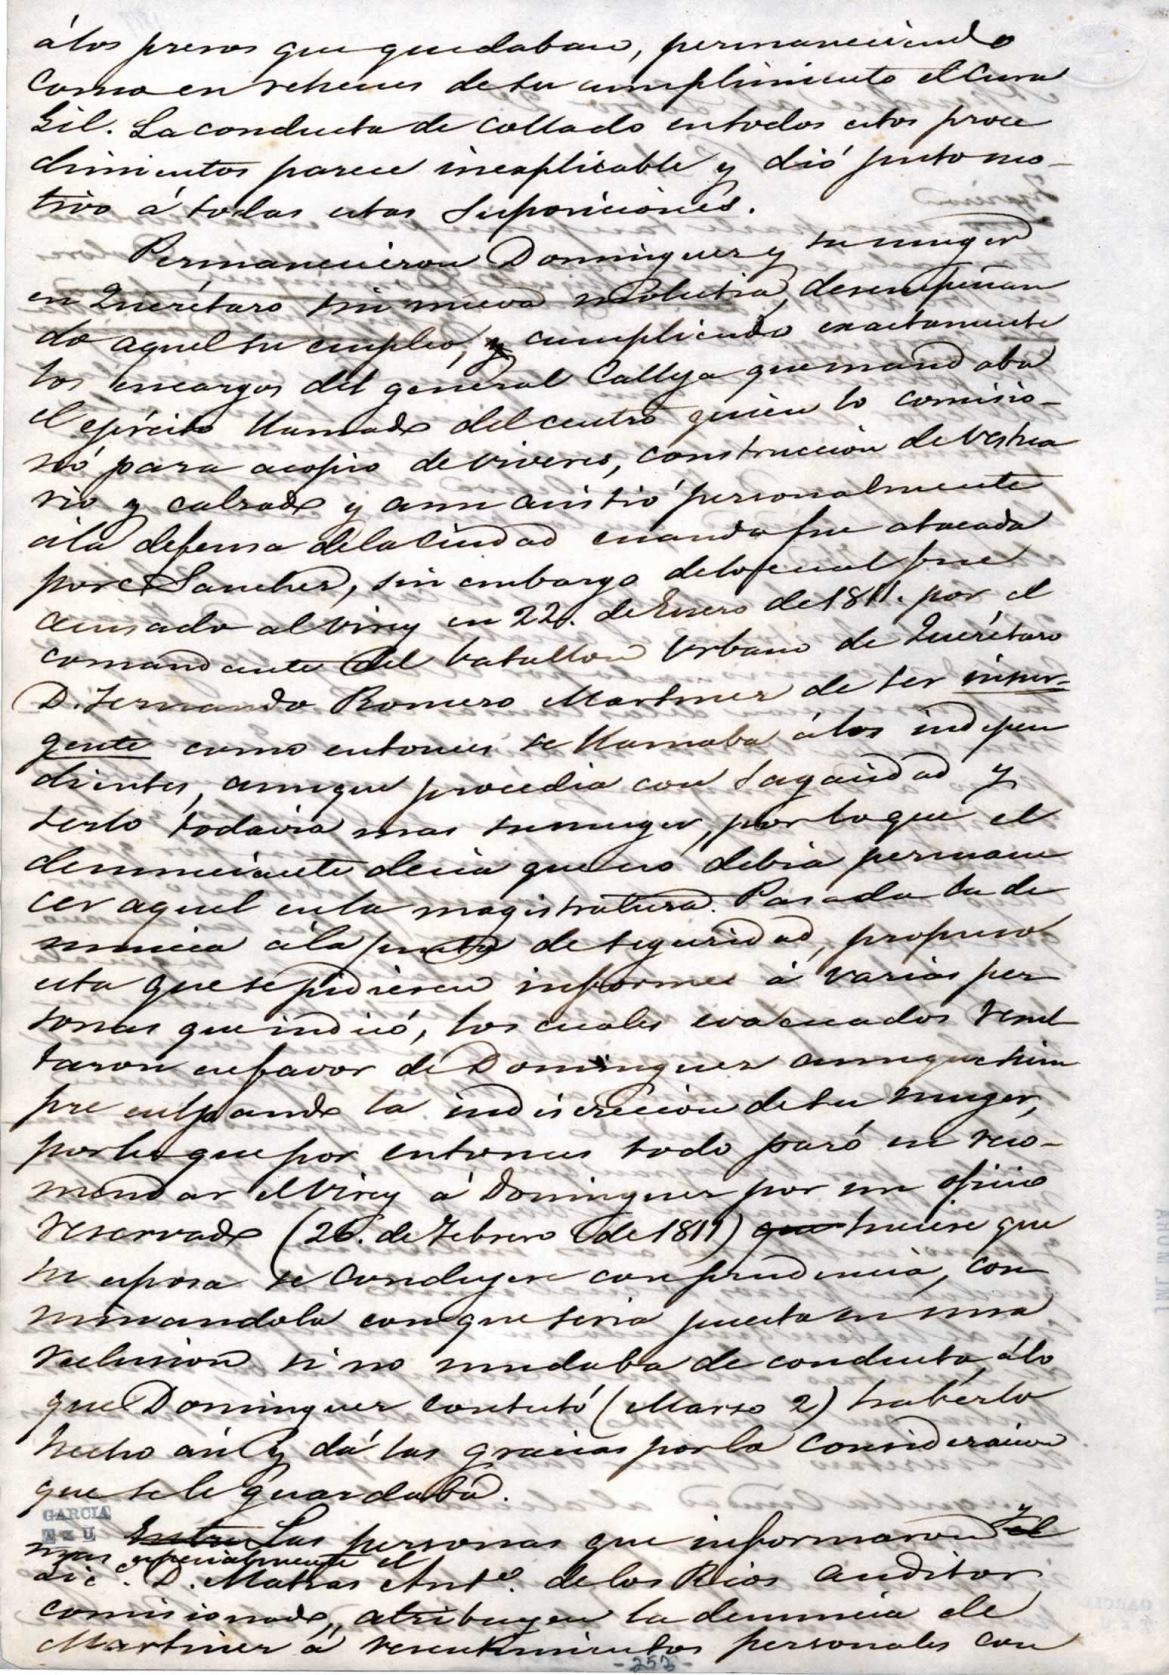 á los presos que quedaban, permaneciendo
como en rehenes de su cumplimiento el Cura
Gil. La conducta de Collado en todos estos proce
dimientos parece inexplicable y dió justo mo-
tivo á todas estas suposiciones.
Permanecieron Dominguez y su muger
en Querétaro sin nueva molestia, desempeñan
do aquel su empleo, y cumpliendo exactamente
los encargos del general Calleja que mandaba
el ejército llamado del centro quien lo comisio-
nó para acopio de viveres, construccion de vestua
rio y calzado y aun asistió personalmente
á la defensa de la Ciudad cuando fue atacada
por Sanchez, sin embargo de lo cual fue
acusado al virey en 22. de Enero de 1811. por el
comandante del batallon Urbano de Querétaro
D. Fernando Romero Martinez de ser insur-
gente como entonces se llamaba á los indepen
dientes, aunque procedia con sagacidad y
serlo todavia mas su muger, por lo que el
denunciante decia que no debia permane
cer aquel en la magistratura. Pasada la de
nuncia á la junta de seguridad, propuso
esta que se pidiesen informes á varias per
sonas que indicó, los cuales evacuados resul
taron en favor de Dominguez aunque siem
pre culpando la indiscrecion de su muger,
por lo que por entonces todo paró en reco-
mendar el Virey á Dominguez por un oficio
reservado (26. de Febrero de 1811) que hiciese que
su esposa se condujese con prudencia, con
minandola con que seria puesta en una
reclusion si no mudaba de conducta, á lo
que Dominguez contestó (Marzo 2) haberlo
hecho asi y dá las gracias por la consideracion
que se le guardaba.
GARCIA
Entre Las personas que informaron y el
mas especialmente el
Lic. D. Matias Anto. de los Rios auditor
comisionado, atribuyen la denuncia de
Martinez á resentimientos personales con
-253-